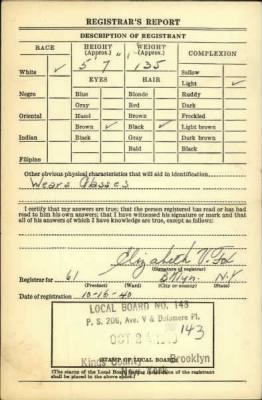 REGISTRAR'S REPORT
DESCRIPTION OF REGISTRANT
RACE HEIGHT (Approx.) WEIGHT (Approx.) COMPLEXION
5' 7" 135
White ✓ Sallow
EYES HAIR Light ✓
Negro Blue Blonde Ruddy
Gray Red Dark
Oriental Hazel Brown Freckled
Brown ✓ Black ✓ Light brown
Indian Black Gray Dark brown
Bald Black
Filipino
Other obvious physical characteristics that will aid in identification
Wears Glasses
I certify that my answers are true; that the person registered has read or has had
read to him his own answers; that I have witnessed his signature or mark and that
all of his answers of which I have knowledge are true, except as follows:
Elizabeth V. Fox
(Signature of registrar)
Registrar for 61 Bklyn. N.Y
(Precinct) (Ward) (City or county) (State)
Date of registration 10-16-40
LOCAL BOARD NO. 143
P. S. 206, Ave. V & Delamere Pl.
143
OCT 2
Kings County Brooklyn
New York
(STAMP OF LOCAL BOARD)
(The stamp of the Local Board having jurisdiction of the registrant
shall be placed in the above space.)